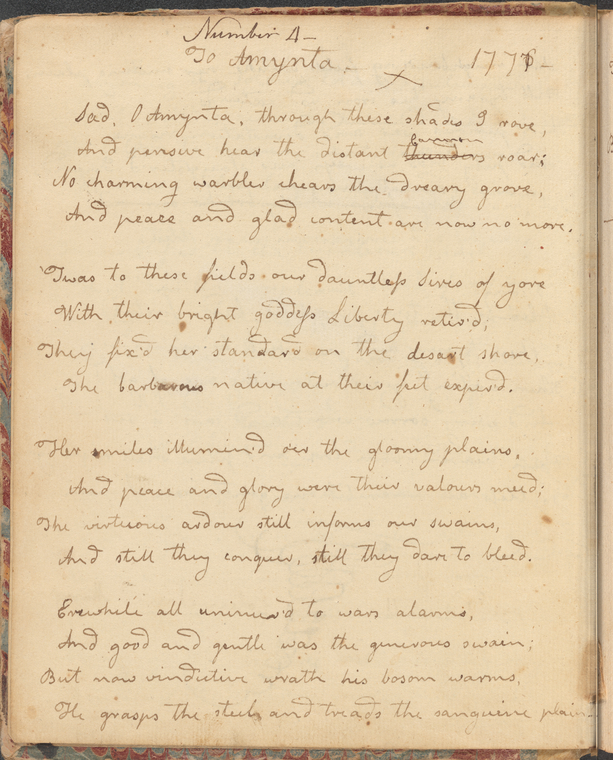 Number 4 –
To Amynta –
1776 –
Sad, O Amynta, through these shades I rove,
cannon
And pensive hear the distant thunders roar;
No charming warbler chears the dreary grove,
And peace and glad content are now no more.
'Twas to these fields our dauntless Sires of yore
With their bright goddess Liberty retir'd;
They fix'd her standard on the desart shore,
The barbarous native at their feet expir'd.
Her smiles illumin'd o'er the gloomy plains,
And peace and glory were their valours meed;
The virtuous ardour still informs our swains,
And still they conquer, still they dare to bleed.
Erewhile all uninur'd to wars alarms,
And good and gentle was the generous swain;
But now vindictive wrath his bosom warms,
He grasps the steel, and treads the sanguine plain